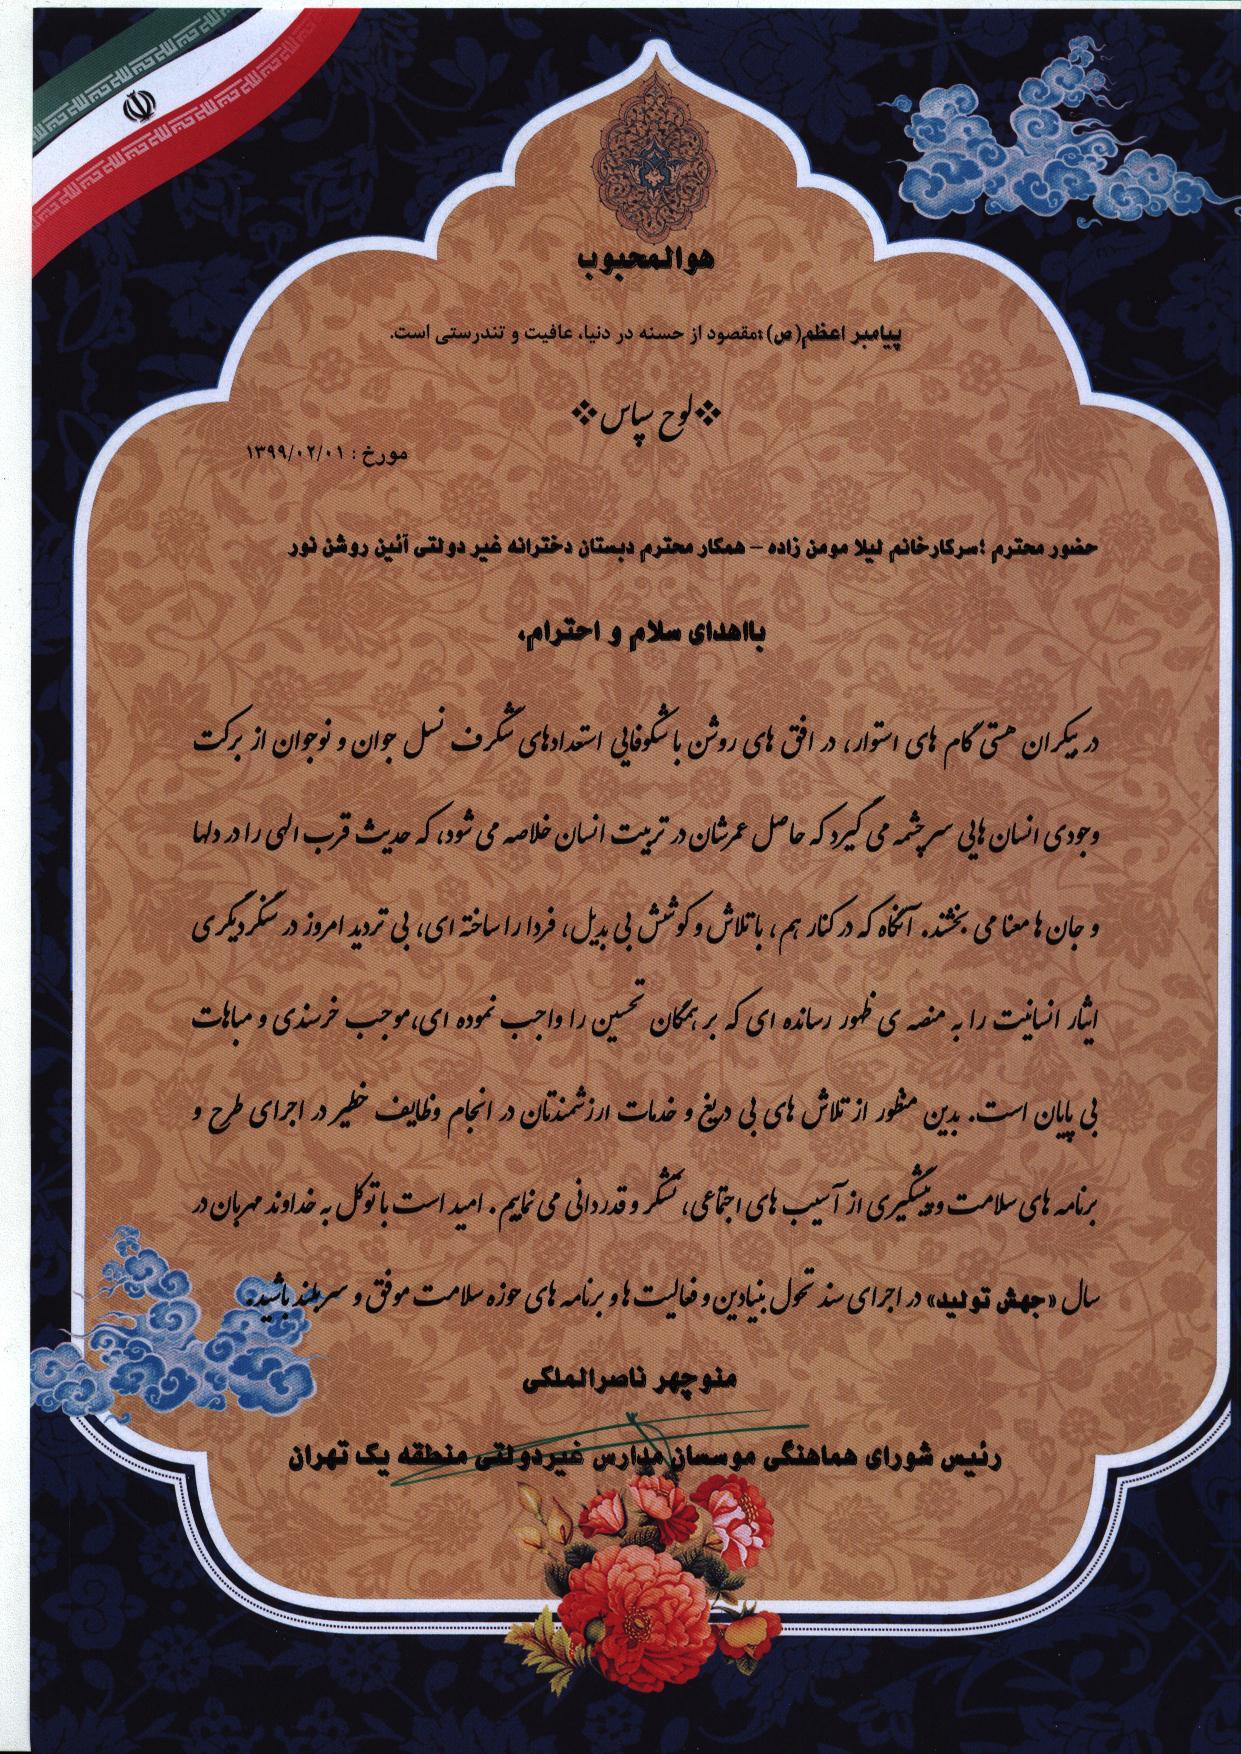 هوالمحبوب
پیامبر اعظم(ص) :مقصود از حسنه در دنیا، عافیت و تندرستی است.
لوح سپاس
مورخ : ۱۳۹۹/۰۲/۰۱
حضور محترم ؛سرکارخانم لیلا مومن زاده – همکار محترم دبستان دخترانه غیر دولتی آئین روشن نور
بااهدای سلام و احترام،
در بیکران هستی گام های استوار، در افق های روشن با شکوفایی استعدادهای شگرف نسل جوان و نوجوان از برکت
وجودی انسان هایی سرچشمه می گیرد که حاصل عمرشان در تربیت انسان خلاصه می شود، که حدیث قرب الهی را در دلها
و جان ها معنا می بخشند. آنگاه که در کنار هم، با تلاش و کوشش بی بدیل، فردا را ساخته ای، بی تردید امروز در سنگر دیگری
ایثار انسانیت را به منصه ی ظهور رسانده ای که بر همگان تحسین را واجب نموده ای، موجب خرسندی و مباهات
بی پایان است. بدین منظور از تلاش های بی دریغ و خدمات ارزشمندتان در انجام وظایف خطیر در اجرای طرح و
برنامه های سلامت و پیشگیری از آسیب های اجتماعی، تشکر و قدردانی می نمایم. امید است با توکل به خداوند مهربان در
سال «جهش تولید» در اجرای سند تحول بنیادین و فعالیت ها و برنامه های حوزه سلامت موفق و سربلند باشید.
منوچهر ناصرالملکی
رئیس شورای هماهنگی موسسان مدارس غیردولتی منطقه یک تهران